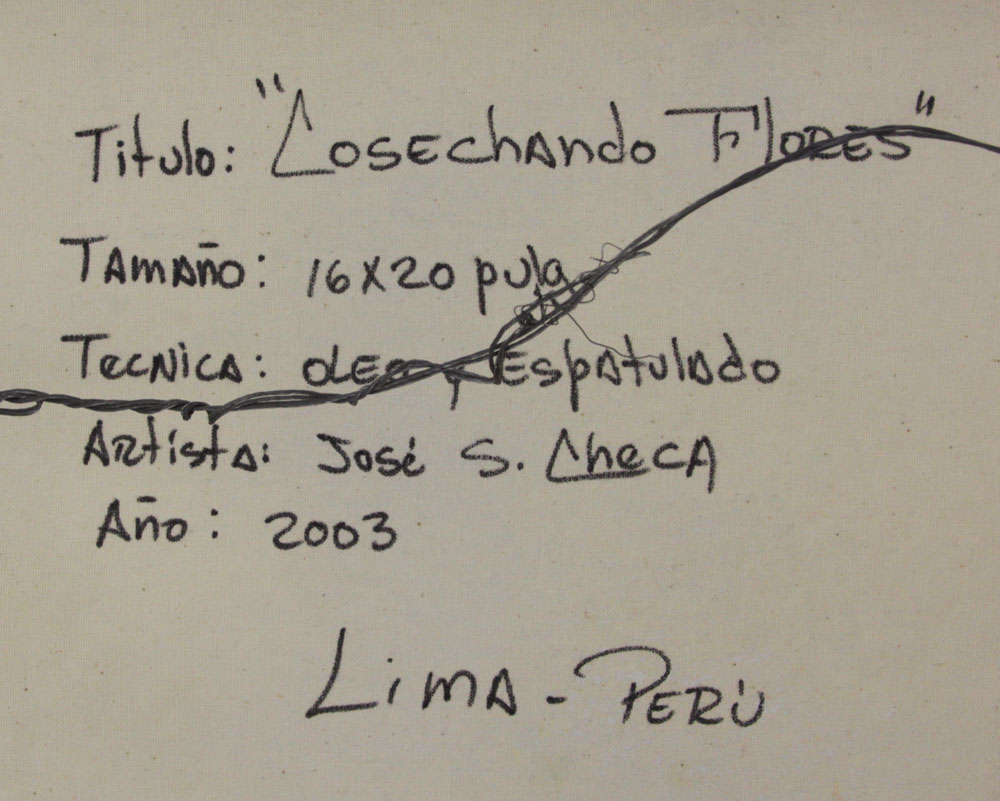 Titulo: "Cosechando Flores"
Tamaño: 16x20 pulg
Tecnica: oleo y Espatulado
Artista: José S. Checa
Año: 2003
Lima - Perú